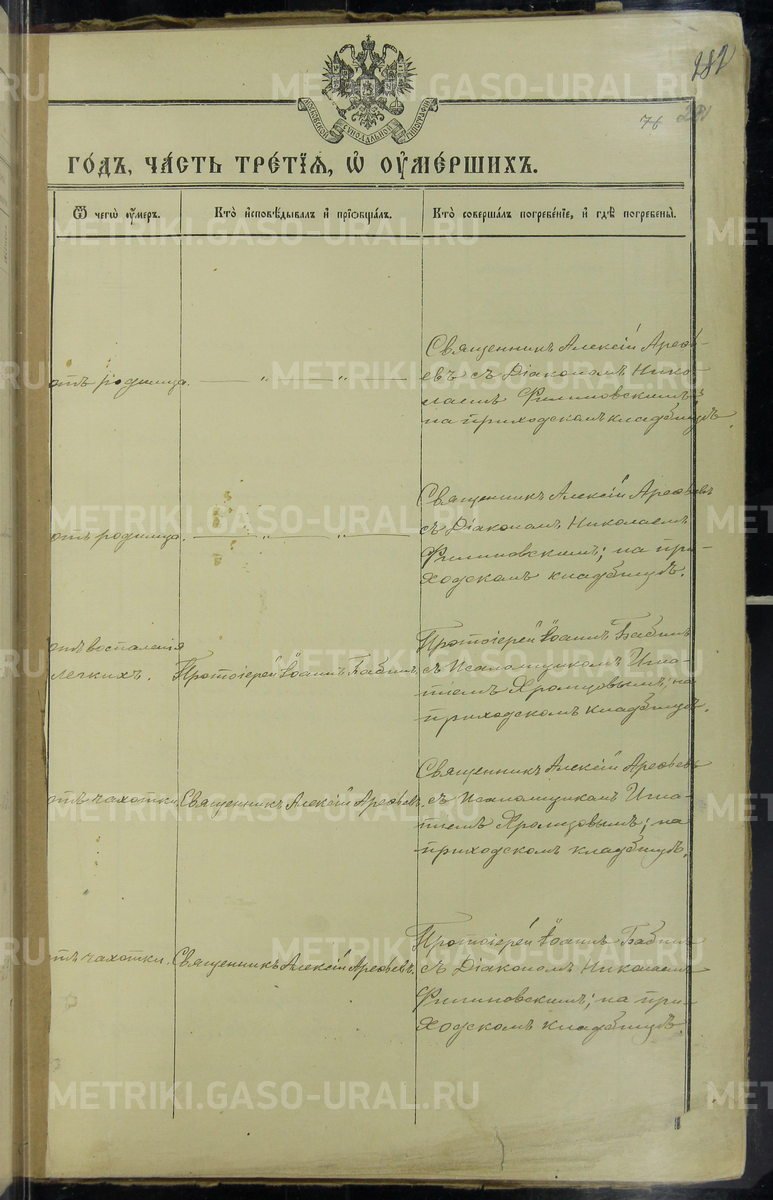 282
76
МОСКОВСКОЙ СѴНОДАЛЬНОЙ ТИПОГРАФІИ
ГО́ДЪ, ЧА́СТЬ ТРЕ́ТІЯ, Ѡ ОУМЕ́РШИХЪ.
Ѿ чегѡ̀ оу́меръ.
Кто̀ и҆сповѣ́дывалъ и҆ прїѡбща́лъ.
Кто̀ соверша́лъ погребе́нїе, и҆ гдѣ̀ погребены̀.
отъ родимца.
— „ — „ —
Священникъ Алексій Арефь-
евъ съ Діакономъ Нико-
лаемъ Филиновскимъ;
на приходскомъ кладбищѣ.
отъ родимца.
— „ — „ —
Священникъ Алексій Арефьевъ
съ Діакономъ Николаемъ
Филиновскимъ; на при-
ходскомъ кладбищѣ.
отъ воспаленія
легкихъ.
Протоіерей Іоаннъ Бабинъ.
Протоіерей Іоаннъ Бабинъ
съ Псаломщикомъ Игна-
тіемъ Хромцовымъ; на
приходскомъ кладбищѣ.
отъ чахотки.
Священникъ Алексій Арефьевъ.
Священникъ Алексій Арефьевъ
съ Псаломщикомъ Игна-
тіемъ Хромцовымъ; на
приходскомъ кладбищѣ.
отъ чахотки.
Священникъ Алексій Арефьевъ.
Протоіерей Іоаннъ Бабинъ
съ Діакономъ Николаемъ
Филиновскимъ; на при-
ходскомъ кладбищѣ.
METRIKI.GASO-URAL.RU